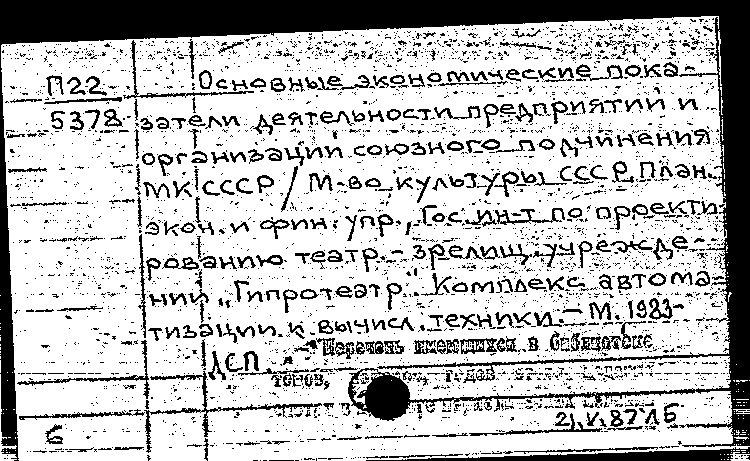 П22
5378
Основные экономические пока-
затели деятельности предприятий и
организаций союзного подчинения
МК СССР / М-во культуры СССР, План.
экон. и фин. упр., Гос. ин-т по проекти
рованию театр.-зрелищ. учрежде-
ний „Гипротеатр". Комплекс автома-
тизации и вычисл. техники. – М. 1983-
ДСП. Перечень имеющихся в библиотеке
томов, годов
6
21.V.87 ЛБ